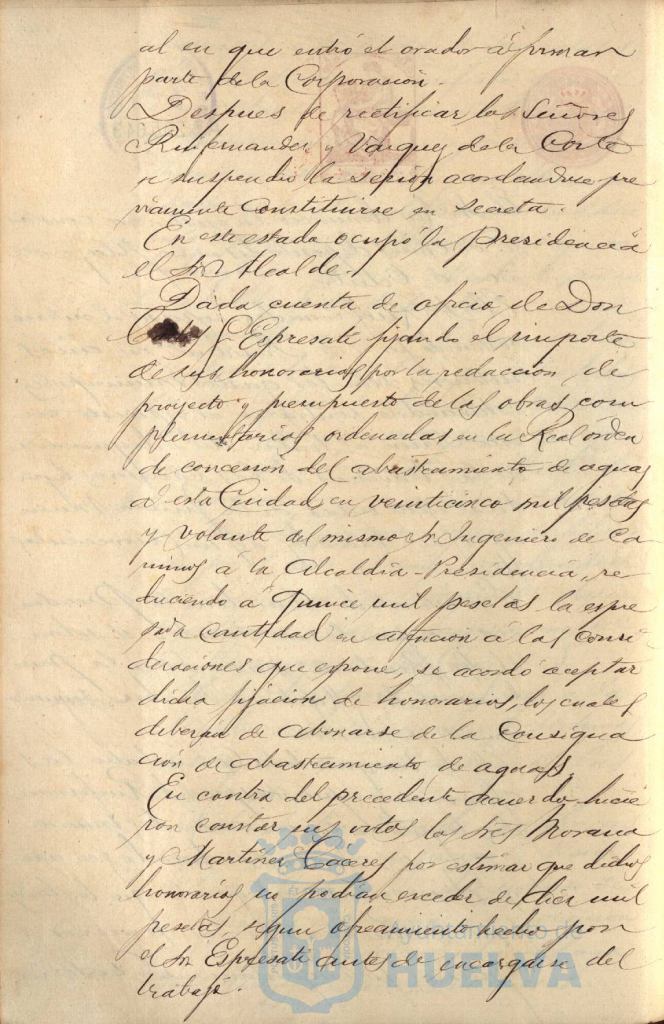 al en que entró el orador á formar
parte de la Corporación.
Despues de rectificar los Señores
Ruifernandez y Vazquez de la Corte
se suspendió la sesión acordandose pre
viamente constituirse en secreta.
En este estado ocupó la Presidencia
el Sor Alcalde.
Dada cuenta de oficio de Don
Carlos Espresate fijando el importe
de sus honorarios por la redacción de
proyecto y presupuesto de las obras com
plementarias ordenadas en la Real órden
de concesión del abastecimiento de aguas
á esta Ciudad en veinticinco mil pesetas
y volante del mismo Sr Ingeniero de Ca
minos á la Alcaldia-Presidencia, re
duciendo á quince mil pesetas la espre
sada cantidad en atención á las consi
deraciones que espone, se acordó aceptar
dicha fijación de honorarios, los cuales
deberan de abonarse de la consigna
ción de abastecimiento de aguas.
En contra del precedente acuerdo hicie
ron constar sus votos los Sres Morana
y Martinez Caceres por estimar que dichos
honorarios no podian exceder de diez mil
pesetas, segun ofrecimiento hecho por
el Sor Espresate antes de encargarse del
trabajo.
Ayuntamiento de
HUELVA